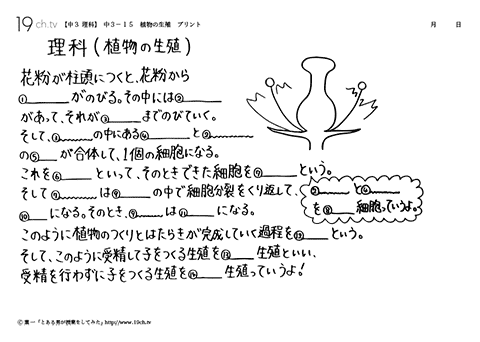 19ch.tv 【中3 理科】 中3－15 植物の生殖 プリント 月 日
理科(植物の生殖)
花粉が柱頭につくと、花粉から
①＿＿＿がのびる。その中には②＿＿＿
があって、それが③＿＿＿までのびていく。
そして、③＿＿＿の中にある④＿＿＿と②＿＿＿
の⑤＿＿が合体して、1個の細胞になる。
これを⑥＿＿＿といって、そのときできた細胞を⑦＿＿＿という。
そして⑦＿＿＿は⑨＿＿＿の中で細胞分裂をくり返して、
⑩＿＿になる。そのとき、③＿＿＿は⑪＿＿＿になる。
②＿＿＿と④＿＿＿
を⑧＿＿細胞っていうよ。
このように植物のつくりとはたらきが完成していく過程を⑫＿＿＿という。
そして、このように受精して子をつくる生殖を⑬＿＿＿生殖といい、
受精を行わずに子をつくる生殖を⑭＿＿＿生殖っていうよ!
© 葉一「とある男が授業をしてみた」http://www.19ch.tv